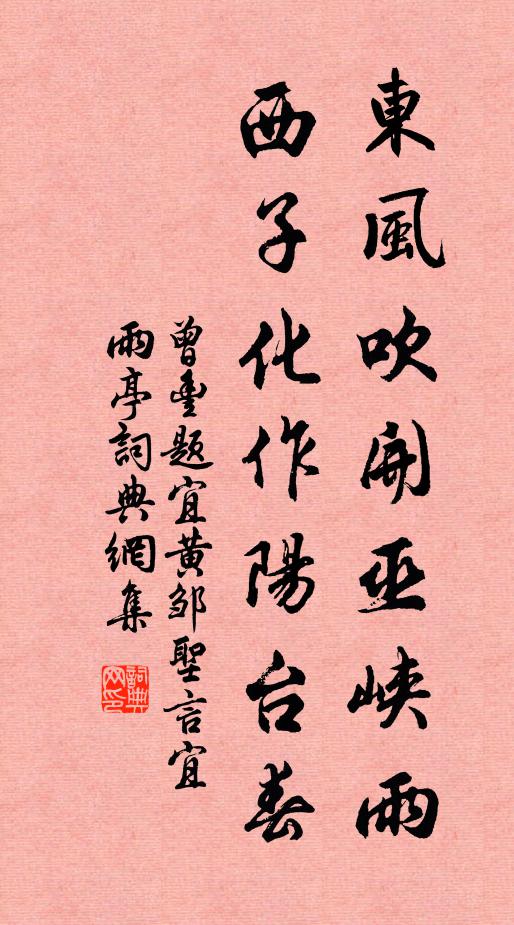 東風吹開巫峽雨
西子化作陽台春
曾豊題宜黃鄒聖言宜
雨亭詞典網集
詞典网印